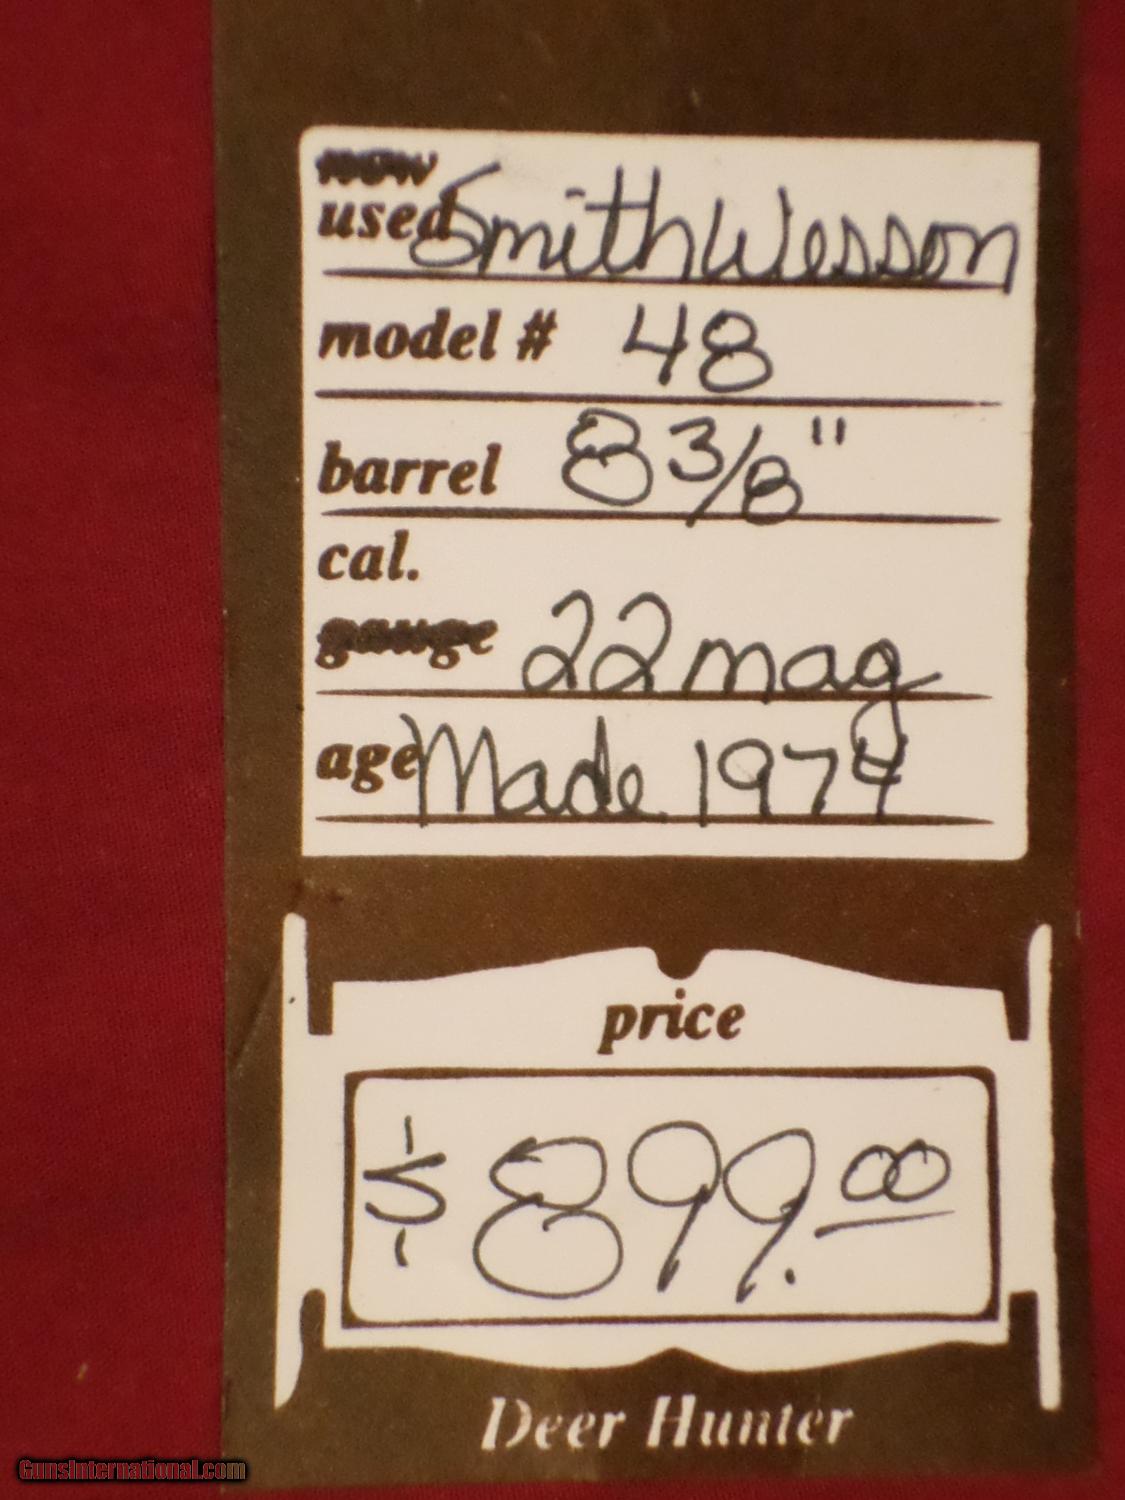 new
used Smith Wesson
model # 48
barrel 8 3/8"
cal.
gauge 22 mag
age Made 1974
price
$899.00
Deer Hunter
GunsInternational.com